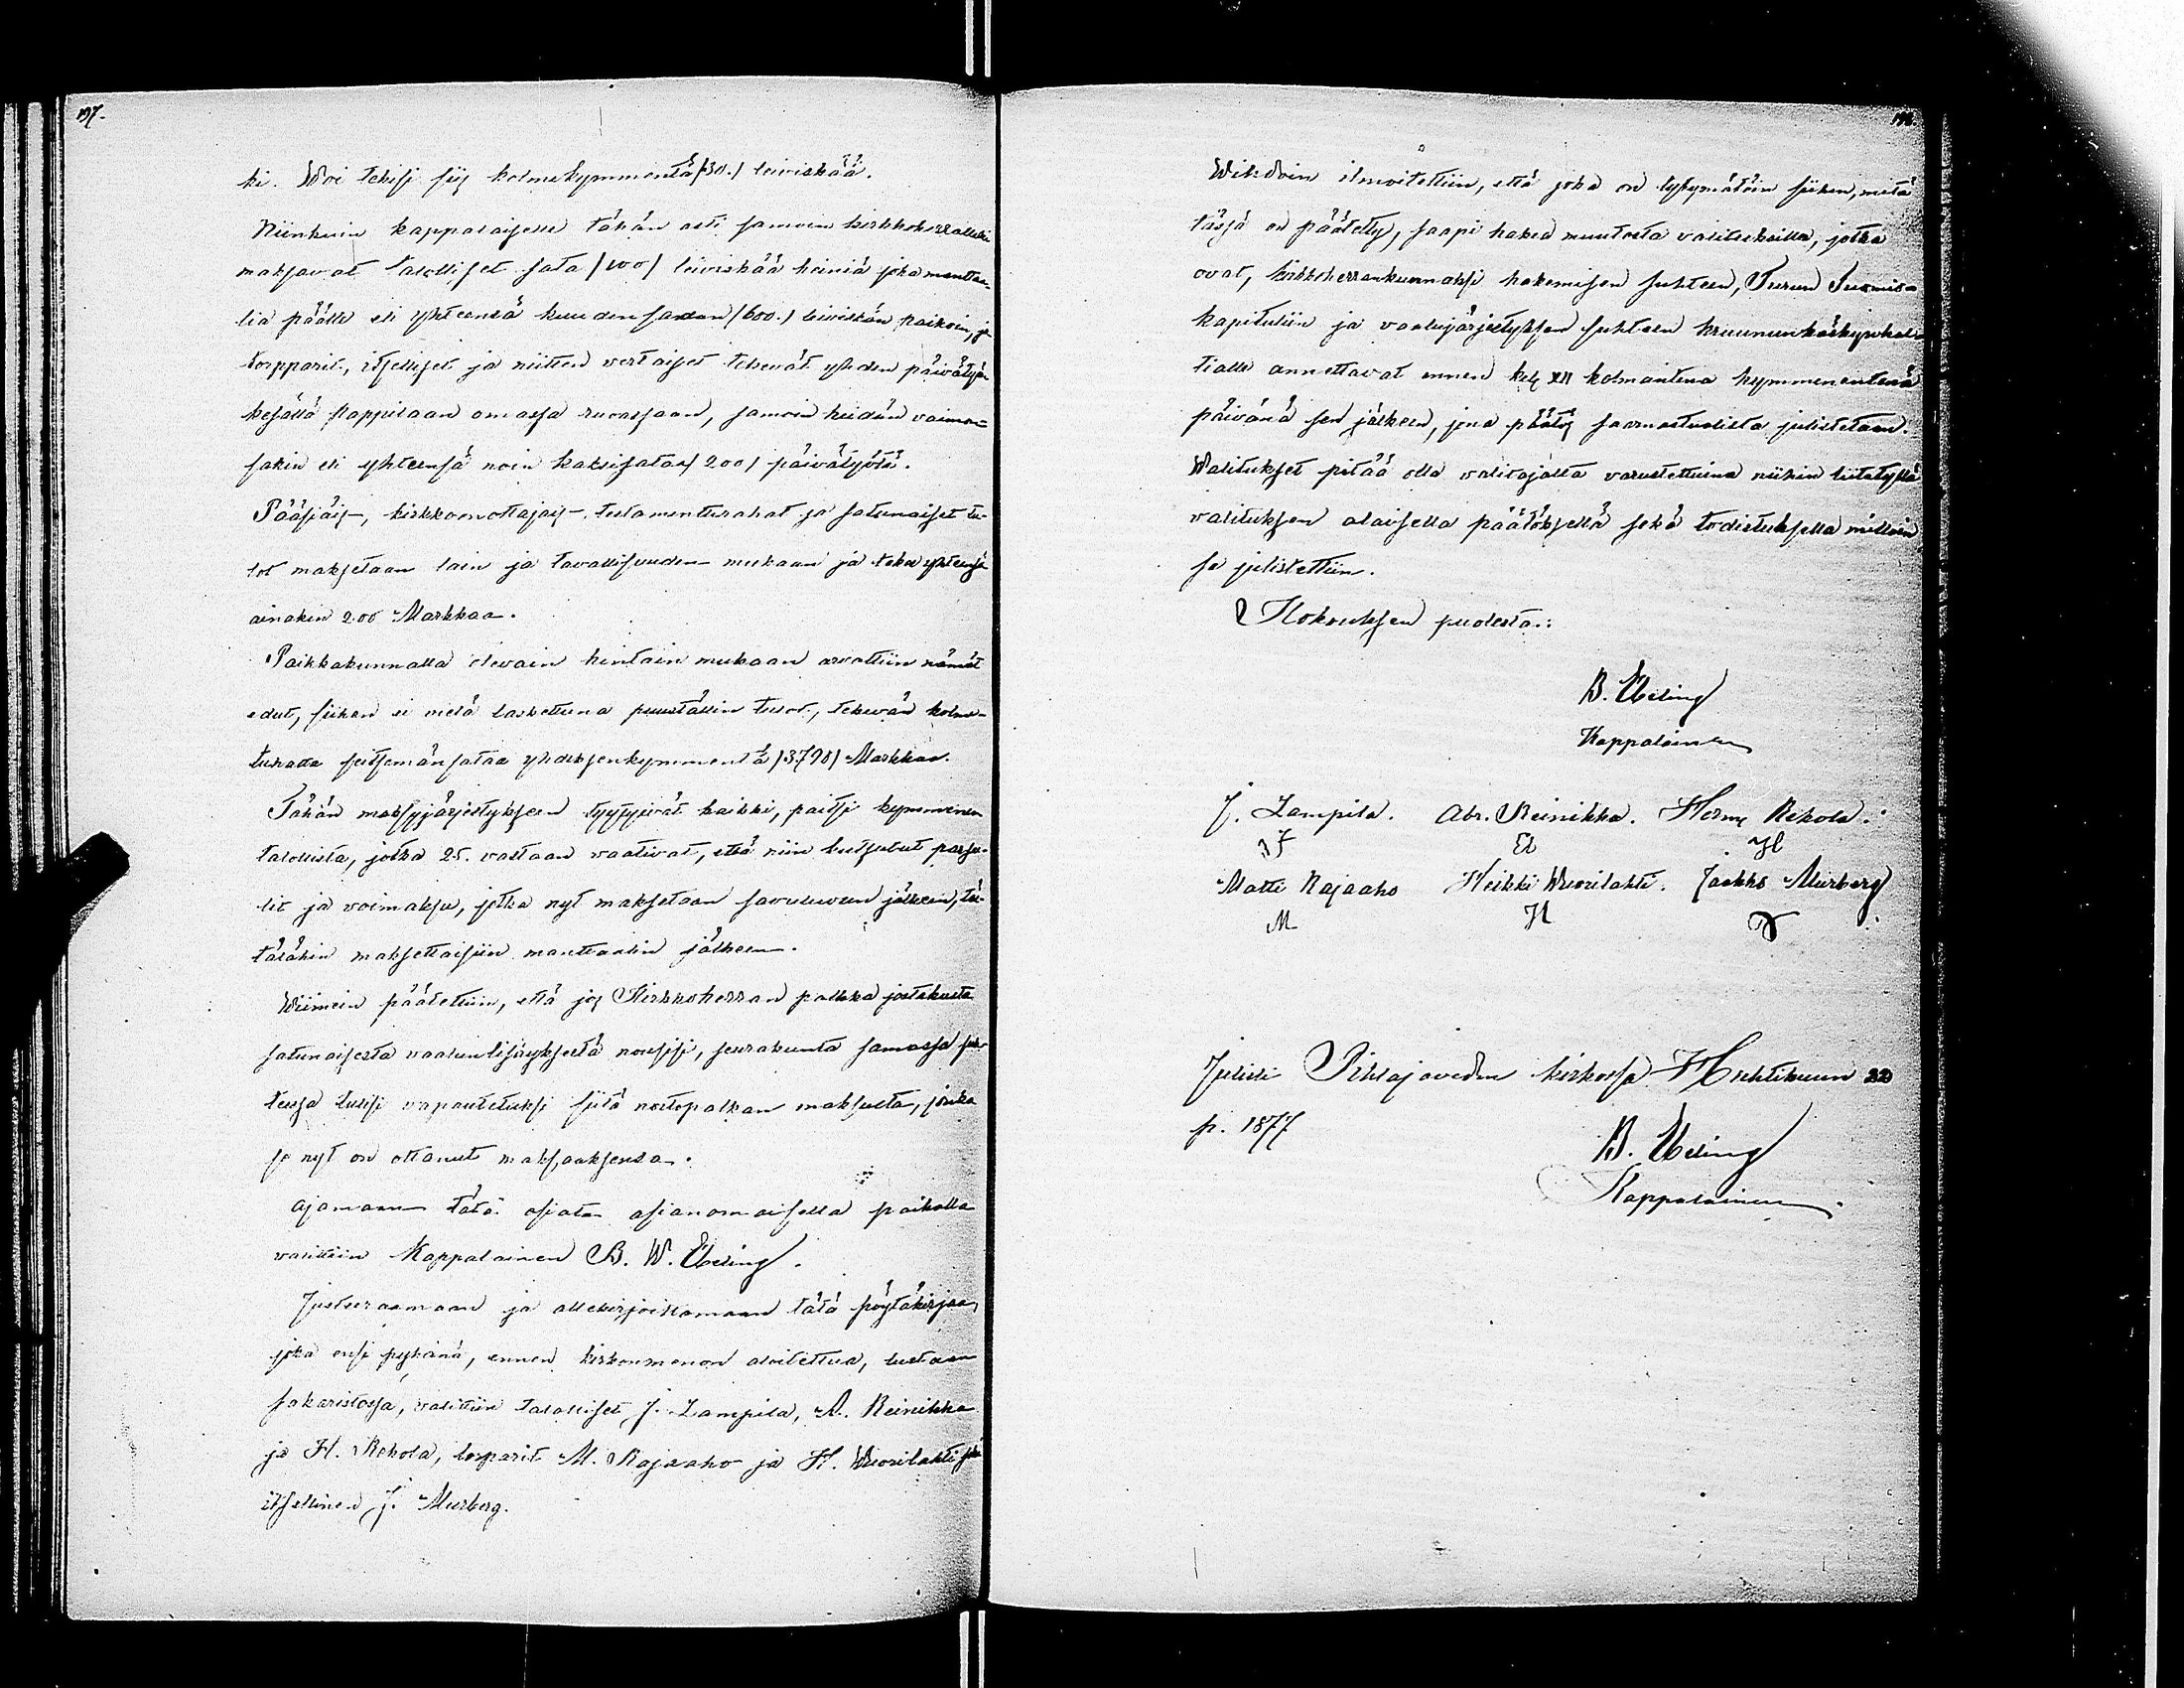 197.
ki. Woi tekisi siis kolmekymmentä /30./ leiviskää.
Niinkuin kappalaiselle tähän asti samoin kirkkoherralleki
maksavat talolliset sata /100/ leiviskää heiniä joka mantta-
lia päälle eli yhteensä kuuden sadan /600./ leiviskän paikoin, ja
torpparit, itselliset ja niitten vertaiset tekevät yhden päivätyön
kesällä pappilaan omassa ruuassaan, samoin heidän vaimon-
sakin eli yhteensä noin kaksisataa /200/ päivätyötä.
Pääsiäis-, kirkkoonottajais-, testamenttirahat ja satunaiset tu-
lot maksetaan lain ja tavallisuuden mukaan ja teke yhteensä
ainakin 200 Markkaa.
Paikkakunnalla olevain hintain mukaan arvattiin nämät
edut, siihen ei vielä laskettuna puustallin tulot, tekevän kolme-
tuhatta seitsemänsataa yhdeksänkymmentä /3790/ Markkaa.
Tähän maksujärjestykseen tyytyivät kaikki, paitsi kymmenen
talollista, jotka 25. vastaan vaativat, että niin kutsutut parse-
lit ja voimaksu, jotka nyt maksetaan savuluvun jälkeen, täs-
täläkin maksettaisiin manttaalin jälkeen.
Wiimein päätettiin, että jos Kirkkoherran palkka jostakusta
satunaisesta vaalun lisäyksestä nousisi, seurakunta samassa suh-
teessa tulisi vapautetuksi siitä nostopalkan maksusta, jonka
se nyt on ottanut maksaaksensa.
Ajamaan tätä asiata asianomaisella paikalla
valittiin Kappalainen B. W. Ebeling.
Justeeraamaan ja allekirjoittamaan tätä pöytäkirjaa,
joka ensi pyhänä, ennen kirkonmenon aloitettua, luetaan
sakaristossa, valittiin talolliset J. Lampila, A. Reinikka
ja H. Rekola, torparit M. Rajaaho ja H. Wuorilahti sekä
itsellinen J. Murberg.
198.
Wihdoin ilmoitettiin, että joka on tytymätöin siihen, mitä
tässä on päätetty, saapi hakea muutosta valituksilla, jotka
ovat, kirkkoherrankunnaksi hakemisen suhteen, Turun Tuomio-
kapituliin ja vaalujärjestyksen suhteen kruununkäskynhal-
tialle annettavat ennen kello XII kolmantena kymmenentenä
päivänä sen jälkeen, jona päätös saarnastuolista julistetaan.
Walitukset pitää olla valittajalta varustettuina niihin liitetyllä
valituksen alaisella päätöksellä sekä todistuksella milloin
se julistettiin.
Kokouksen puolesta:
B. Ebeling
Kappalainen
J. Lampila. Abr. Reinikka. Herm Rekola.
Matti Rajaaho Heikki Wuorilahti. Jaakko Murberg
M H
Julisti Pihlajaveden kirkossa Huhtikuun 22
p. 1877
B. Ebeling
Kappalainen.